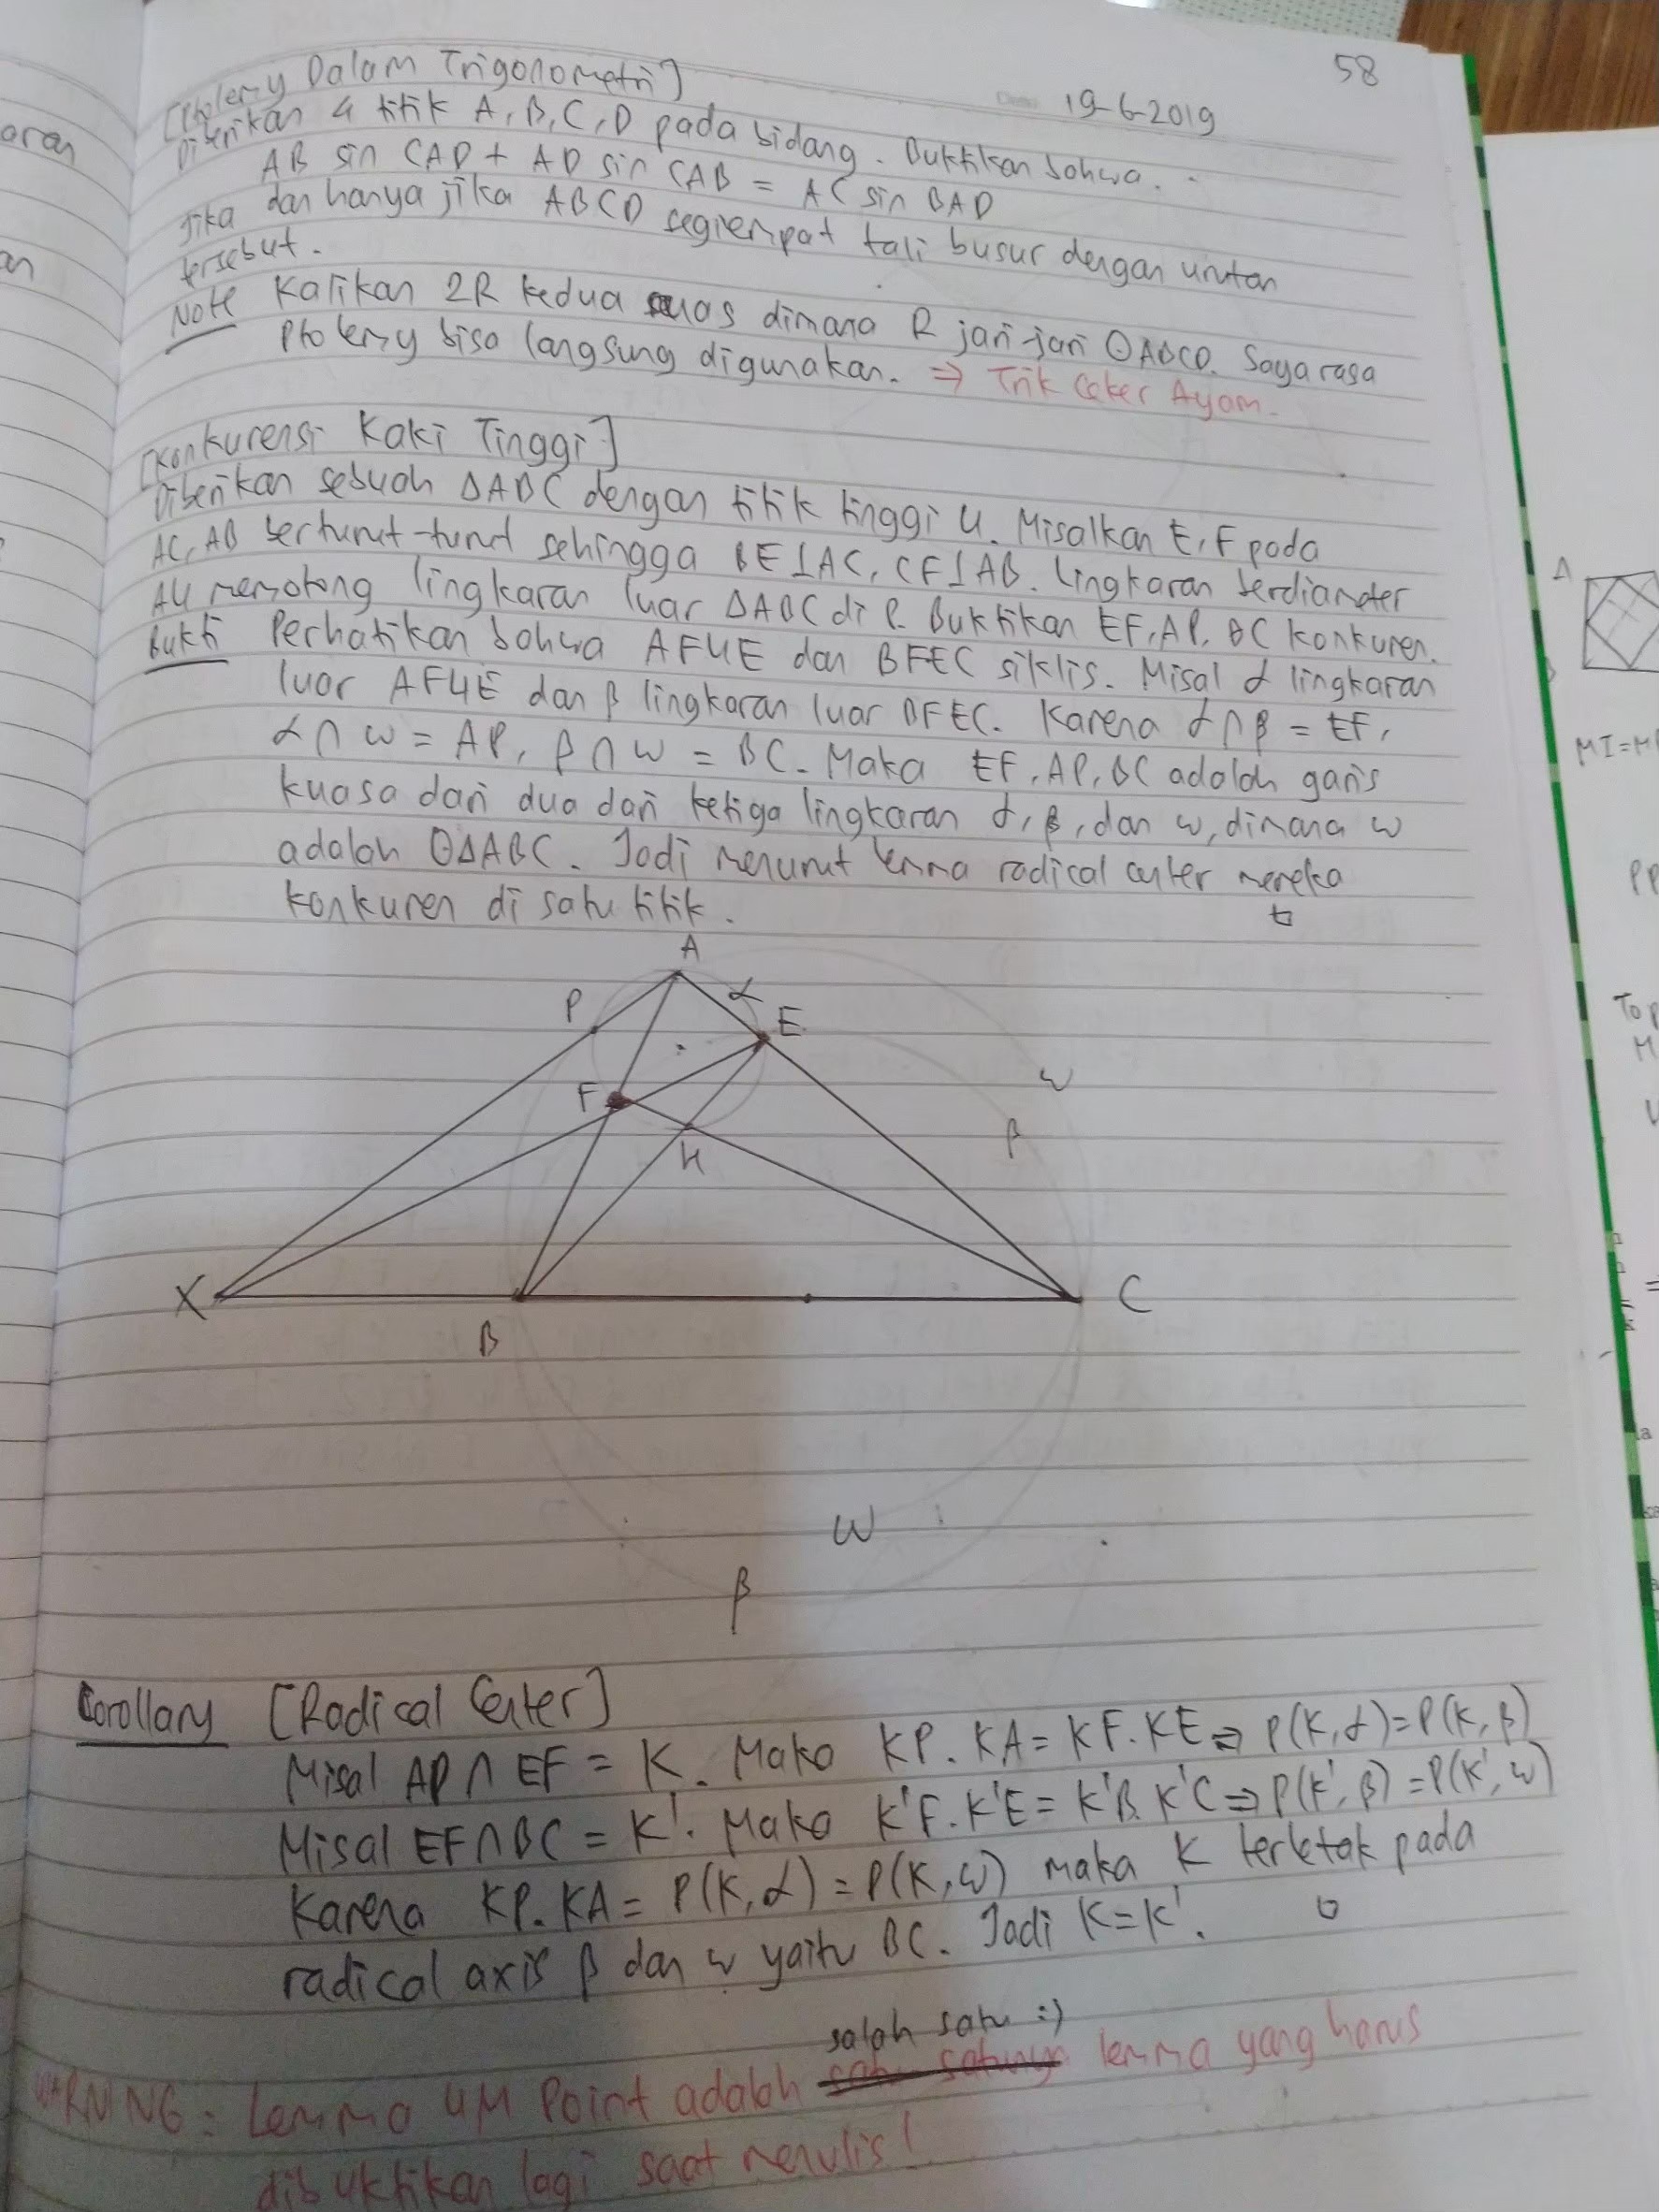 58
19-6-2019
[Ptolemy Dalam Trigonometri]
Diberikan 4 titik A, B, C, D pada bidang. Buktikan bahwa..
AB sin CAD + AD sin CAB = AC sin BAD
jika dan hanya jika ABCD segiempat tali busur dengan urutan
tersebut.
Note Kalikan 2R kedua ruas dimana R jari-jari ⊙ABCD. Saya rasa
Ptolemy bisa langsung digunakan. ⇒ Trik Ceker Ayam.
[Konkurensi Kaki Tinggi]
Diberikan sebuah ΔABC dengan titik tinggi H. Misalkan E, F pada
AC, AB berturut-turut sehingga BE⊥AC, CF⊥AB. Lingkaran berdiameter
AH memotong lingkaran luar ΔABC di P. Buktikan EF, AP, BC konkuren.
Bukti Perhatikan bahwa AFHE dan BFEC siklis. Misal α lingkaran
luar AFHE dan β lingkaran luar BFEC. Karena α∩β = EF,
α∩ω = AP, β∩ω = BC. Maka EF, AP, BC adalah garis
kuasa dari dua dari ketiga lingkaran α, β, dan ω, dimana ω
adalah ⊙ΔABC. Jadi menurut lemma radical center mereka
konkuren di satu titik.
A
P
α
E
F
ω
β
H
X
B
C
ω
β
Corollary [Radical Center]
Misal AP∩EF = K. Maka KP.KA = KF.KE ⇒ P(K,α)=P(K,β)
Misal EF∩BC = K'. Maka K'F.K'E = K'B.K'C ⇒ P(K',β)=P(K',ω)
Karena KP.KA = P(K,α)=P(K,ω) maka K terletak pada
radical axis β dan ω yaitu BC. Jadi K=K'.
salah satu :)
WARNING: Lemma HM Point adalah lemma yang harus
dibuktikan lagi saat menulis!
oran
an
A
MI=M
PP
Top
M